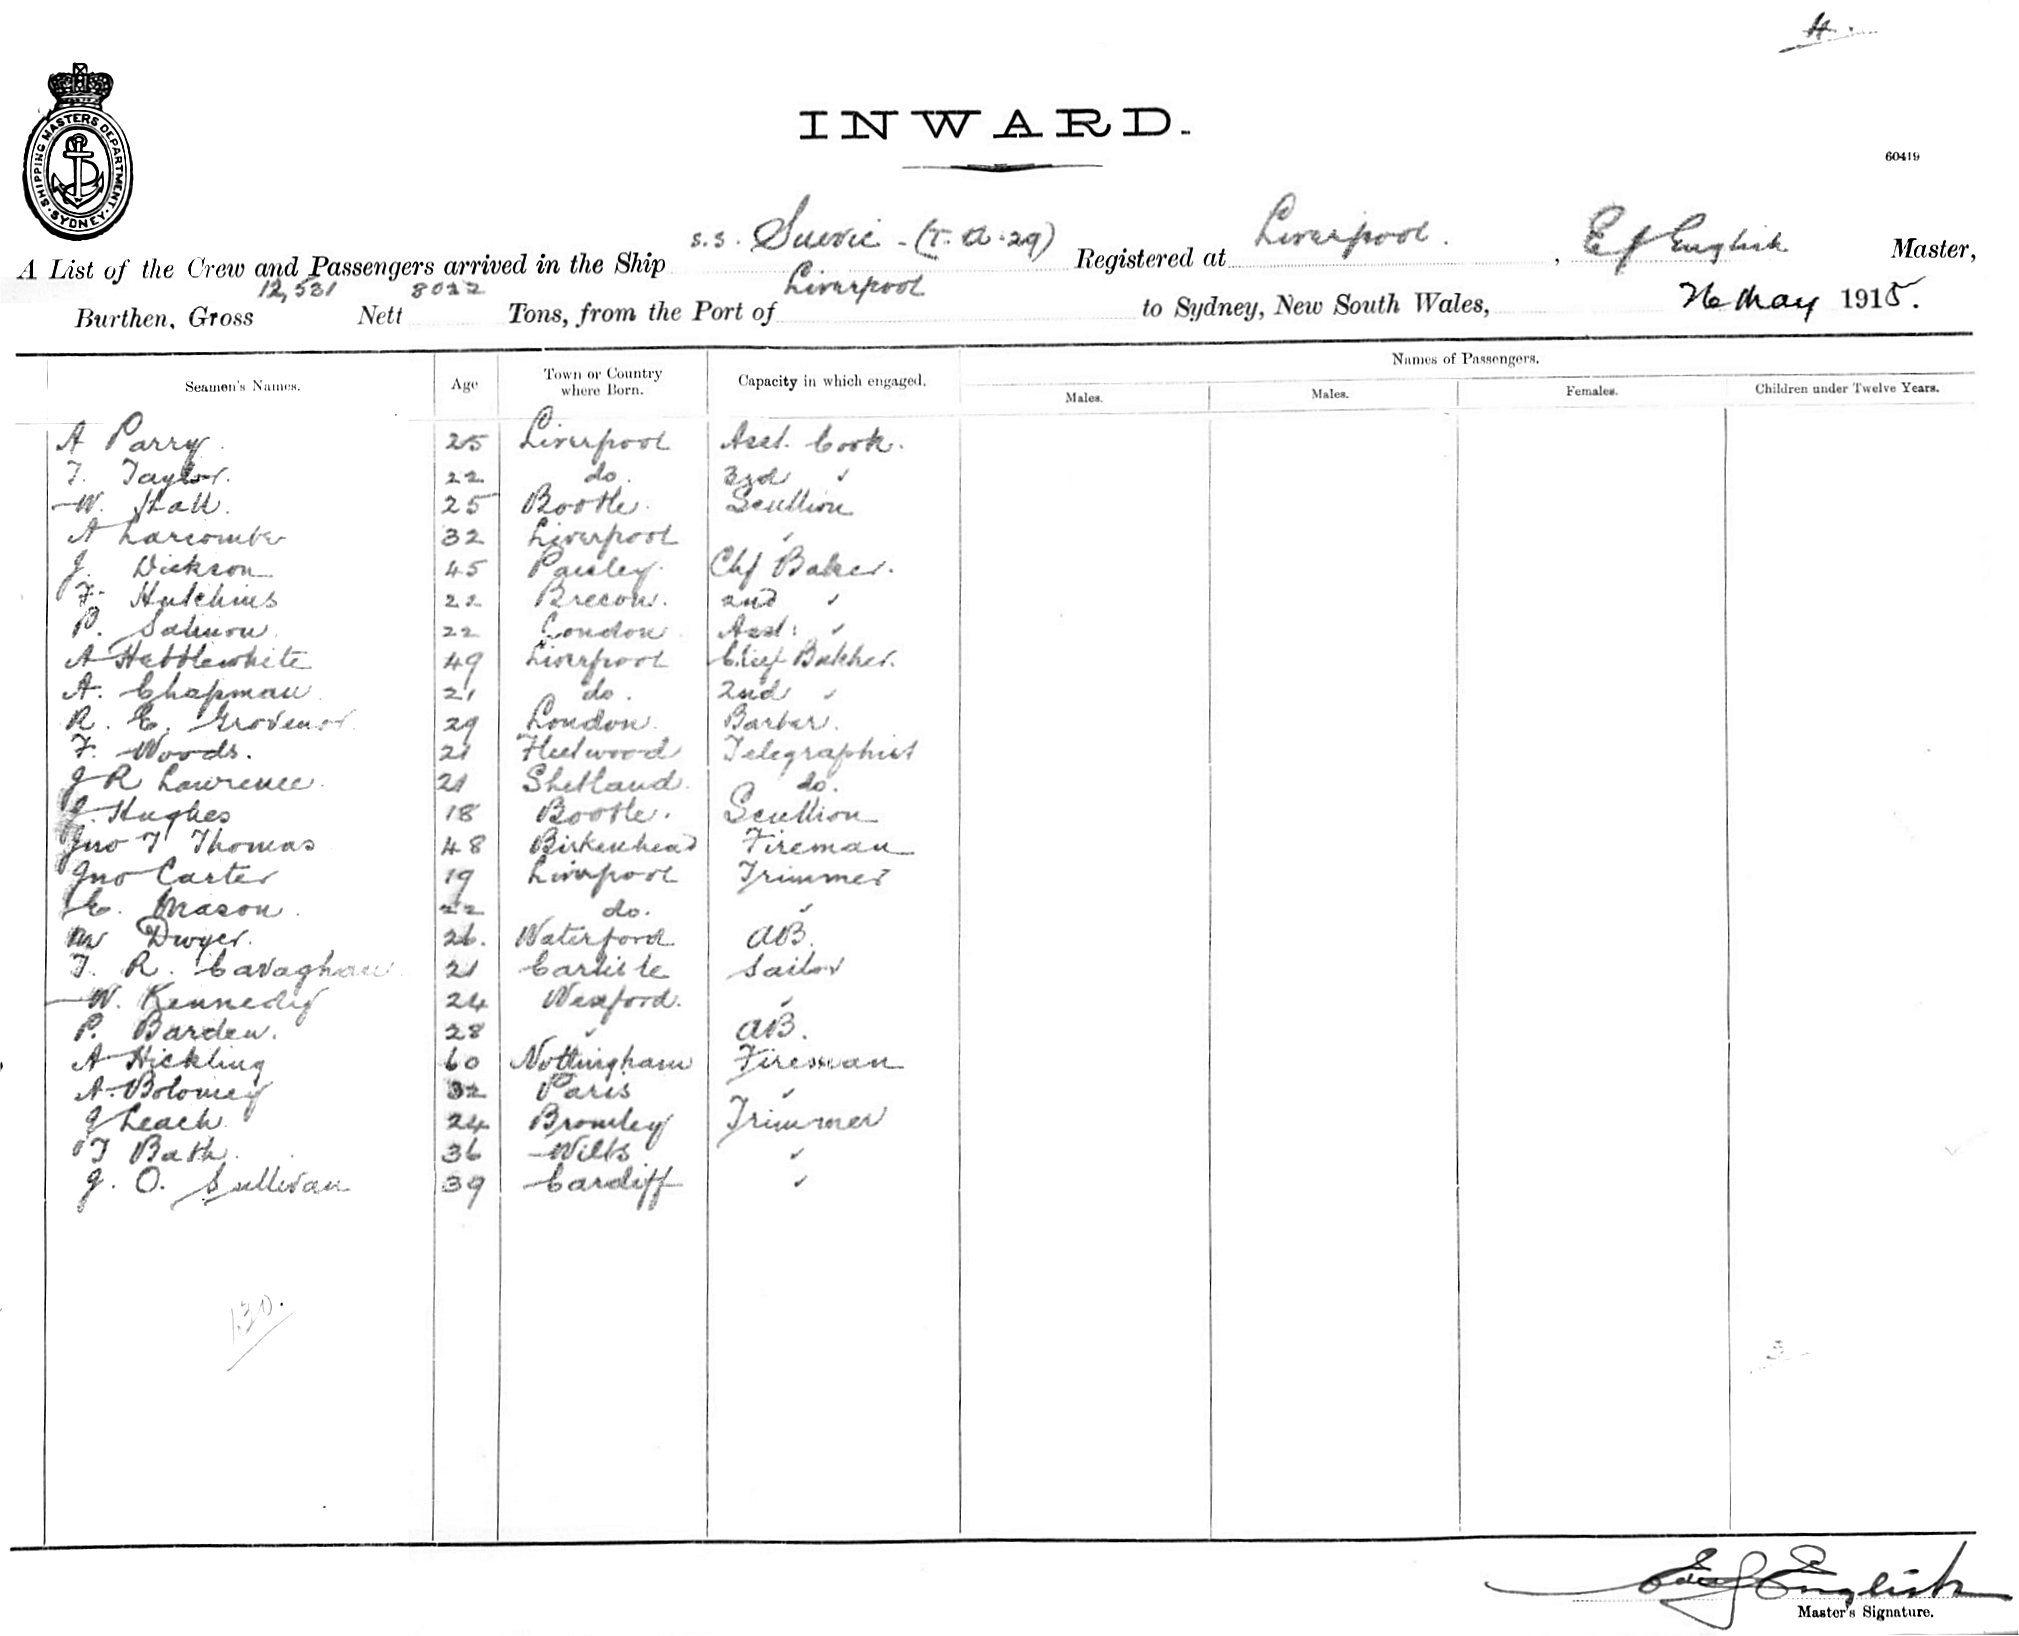 4.
INWARD.
60419
SHIPPING MASTERS DEPARTMENT. SYDNEY.
A List of the Crew and Passengers arrived in the Ship s.s. Suevic - (T.A.29) Registered at Liverpool. , E J English Master,
Burthen, Gross 12,531 Nett 8022 Tons, from the Port of Liverpool to Sydney, New South Wales, 26 May 1915.
Names of Passengers.
Seamen's Names. Age Town or Country where Born. Capacity in which engaged. Males. Males. Females. Children under Twelve Years.
A Parry. 25 Liverpool Asst. Cook.
T. Taylor. 22 do. 3rd "
W. Hall. 25 Bootle. Scullion
A Larcombe 32 Liverpool "
J. Dickson 45 Paisley. Chf Baker.
F. Hutchins 22 Brecon. 2nd "
P. Salmon 22 London Asst: "
A Hebblewhite 49 Liverpool Chief Butcher.
A. Chapman 21 do. 2nd "
R. E. Grovenor 29 London. Barber.
F. Woods. 21 Fleetwood Telegraphist
J R Lawrence. 21 Shetland. do.
J. Hughes 18 Bootle. Scullion
Jno T Thomas 48 Birkenhead Fireman
Jno Carter 19 Liverpool Trimmer
E. Mason. 22 do. "
M Dwyer. 26. Waterford AB.
T. R. Cavaghan 21 Carlisle Sailor
W. Kennedy 24 Wexford. "
P. Barden. 28 " AB.
A Hickling 60 Nottingham Fireman
A. Bolomey 32 Paris "
J Leach 24 Bromley Trimmer
T Bath. 36 Wilts "
J. O. Sullivan 39 Cardiff "
130.
E J English
Master's Signature.